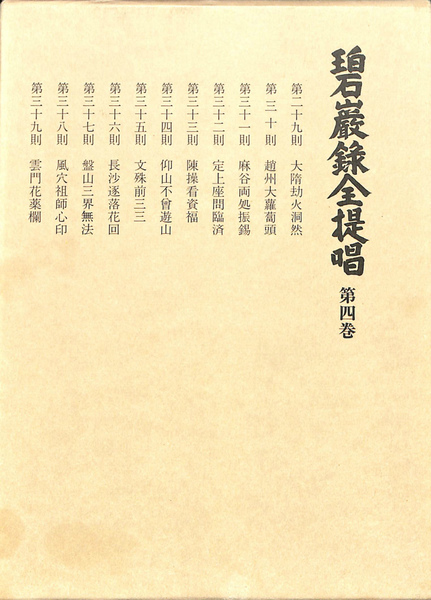 碧巌錄全提唱 第四巻
第二十九則 大隋劫火洞然
第三十則 趙州大蘿蔔頭
第三十一則 麻谷両処振錫
第三十二則 定上座問臨済
第三十三則 陳操看資福
第三十四則 仰山不曾遊山
第三十五則 文殊前三三
第三十六則 長沙逐落花回
第三十七則 盤山三界無法
第三十八則 風穴祖師心印
第三十九則 雲門花薬欄